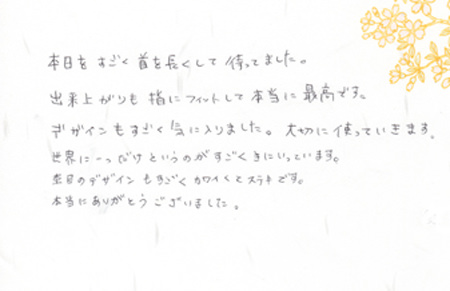 本日をすごく首を長くして待ってました。
出来上がりも指にフィットして本当に最高です。
デザインもすごく気に入りました。大切に使っていきます。
世界に一つだけというのがすごくきにいっています。
当日のデザインもすごくカワイくてステキです。
本当にありがとうございました。